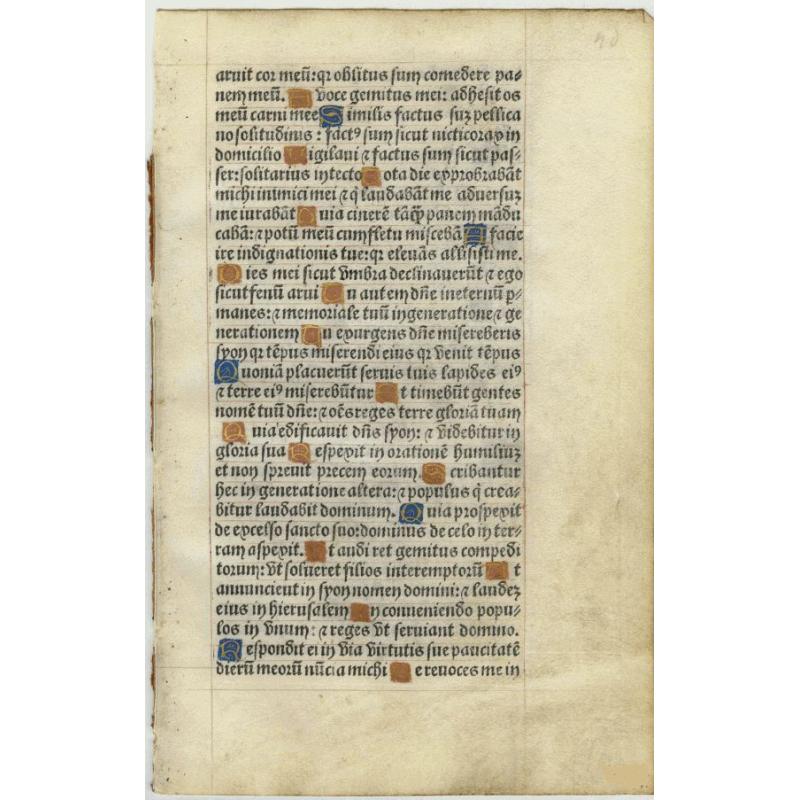 aruit cor meū: qr oblitus sum comedere pa⸗
nem meū. A voce gemitus mei: adhesit os
meū carni mee S imilis factus suꝫ pellica
no solitudinis: factꝰ sum sicut nicticorax in
domicilio V igilaui ⁊ factus sum sicut pas⸗
ser: solitarius in tecto T ota die exprobrabāt
michi inimici mei ⁊ q̄ laudabāt me aduersuꝫ
me iurabāt Q uia cinerē tāꝙ̄ panem mādu
cabā: ⁊ potū meū cum fletu miscebā A facie
ire indignationis tue: qr eleuās allisisti me.
D ies mei sicut vmbra declinauerūt ⁊ ego
sicut fenū arui T u autem dn̄e in eternū ꝑ⸗
manes: ⁊ memoriale tuū in generatione ⁊ ge
nerationem T u exurgens dn̄e misereberis
syon qr tēpus miserendi eius qr venit tēpus
Q uoniā placuerūt seruis tuis lapides eiꝰ
⁊ terre eiꝰ miserebūtur E t timebūt gentes
nomē tuū dn̄e: ⁊ oēs reges terre gloriā tuam
Q uia edificauit dn̄s syon: ⁊ videbitur in
gloria sua R espexit in orationē humiliuꝫ
et non spreuit precem eorum. S cribantur
hec in generatione altera: ⁊ populus q̄ crea⸗
bitur laudabit dominum. Q uia prospexit
de excelso sancto suo: dominus de celo in ter⸗
ram aspexit. V t audiret gemitus compedi
torum: vt solueret filios interemptorū V t
annuncient in syon nomen domini: ⁊ laudeꝫ
eius in hierusalem I n conueniendo popu⸗
los in vnum: ⁊ reges vt seruiant domino.
R espondit ei in via virtutis sue paucitatē
dierū meorū nūcia michi N e reuoces me in